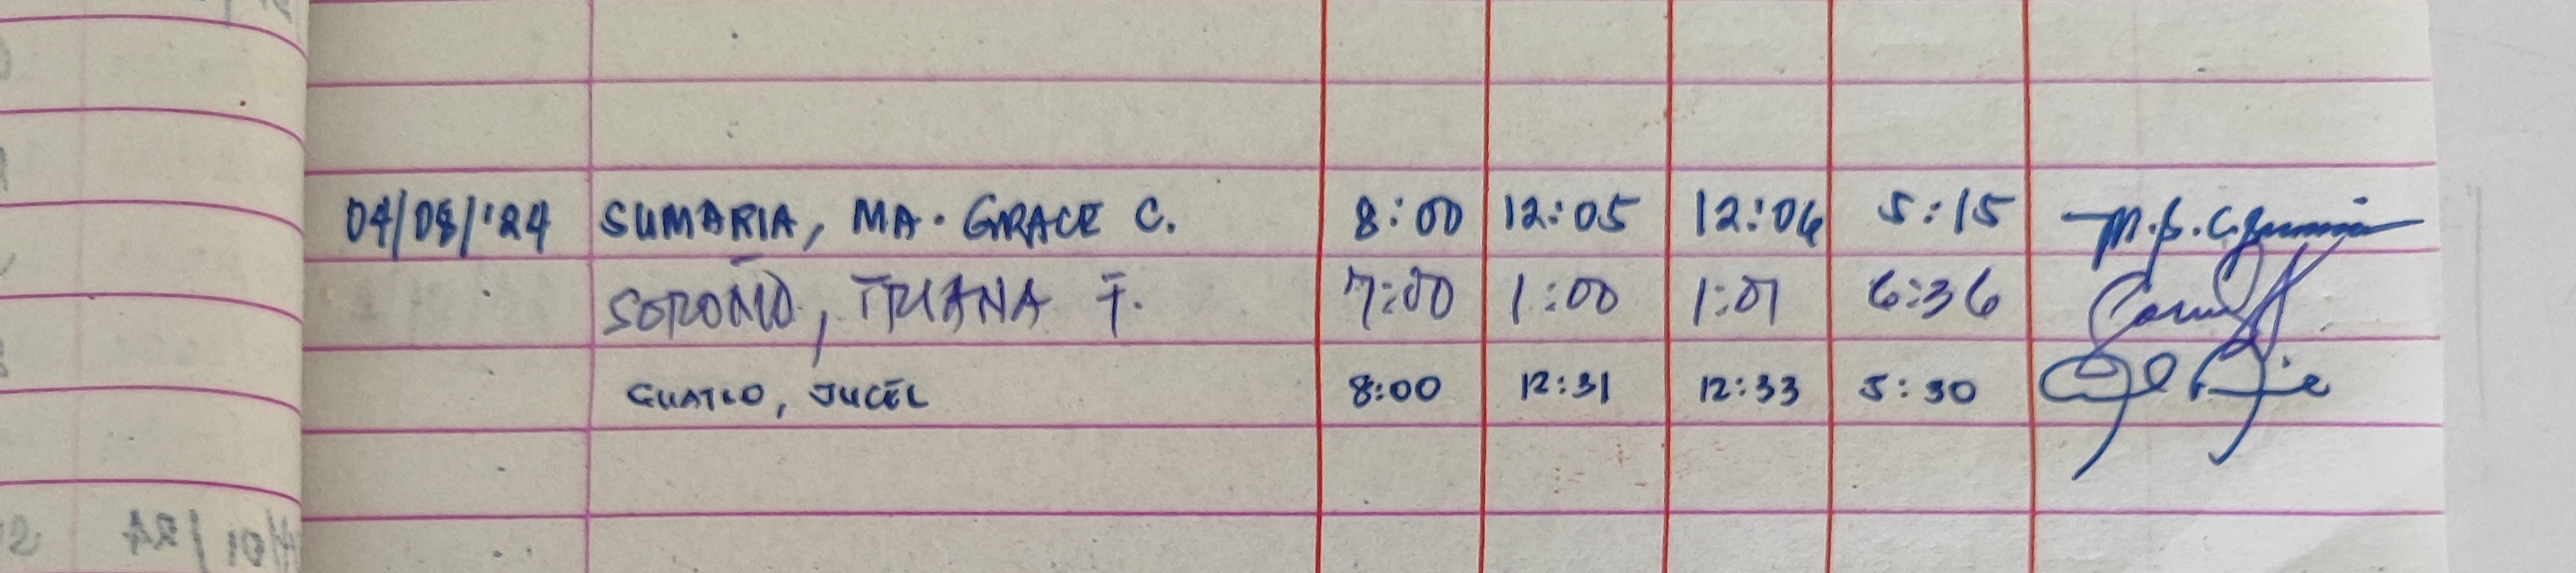 04/08/'24 SUMARIA, MA. GRACE C. 8:00 12:05 12:06 5:15
SOROÑO, TRIANA F. 7:00 1:00 1:01 6:36
GUATLO, JUCEL 8:00 12:31 12:33 5:30